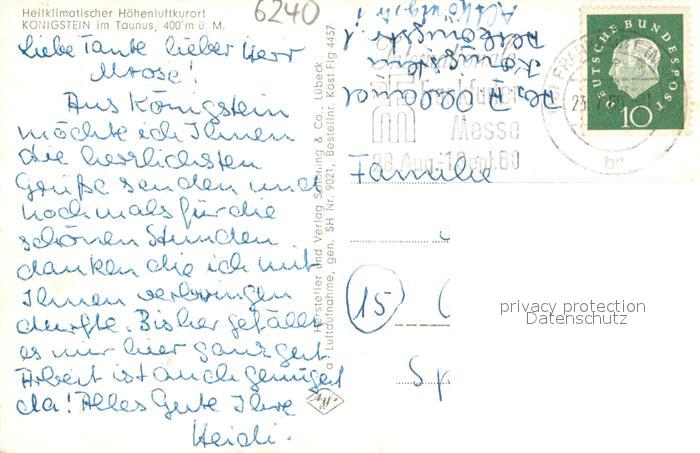 Heilklimatischer Höhenluftkurort
KÖNIGSTEIN im Taunus, 400 m ü. M.
6240
Liebe Tante lieber Herr
Mrose!
Aus Königstein
möchte ich Ihnen
die herzlichsten
Grüße senden und
nochmals für die
schönen Stunden
danken die ich mit
Ihnen verbringen
durfte. Bisher gefällt
es mir hier ganz gut
Arbeit ist auch genügend
da! Alles Gute Ihre
Heidi.
Hersteller und Verlag Schöning & Co., Lübeck
Luftdufnahme, gen. SH Nr. 9021, Bestellnr. Köst Flg 4437
Königstein
Messe
28. Aug.-1. Sept. 60
DEUTSCHE BUNDESPOST
10
Familie
15
privacy protection
Datenschutz
Sp